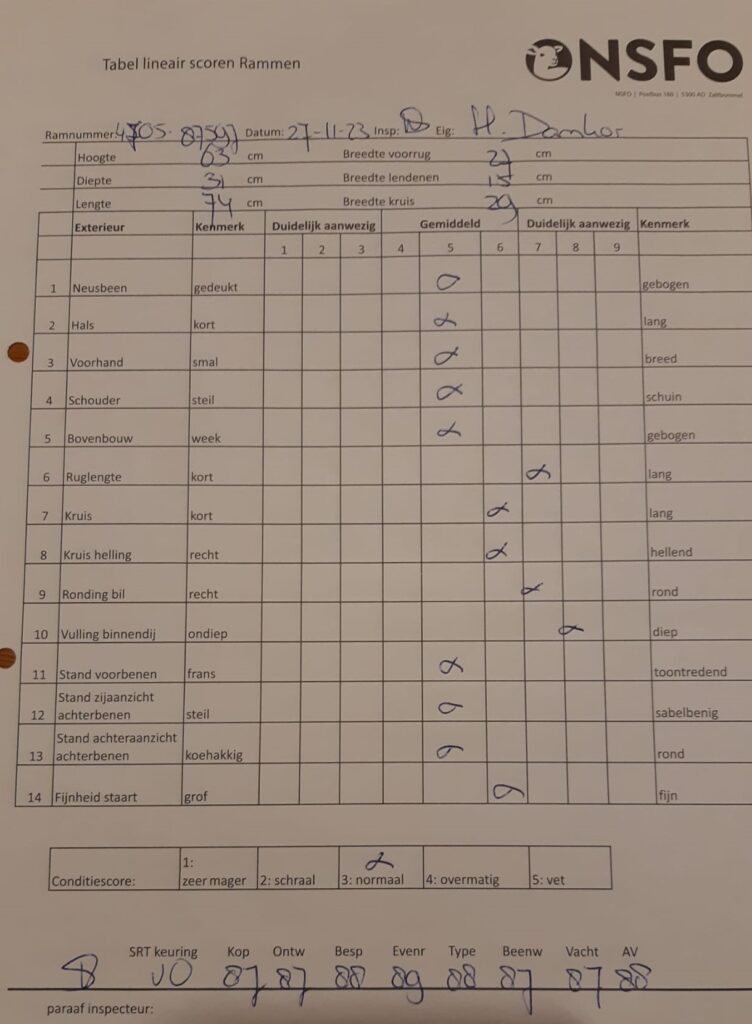 Tabel lineair scoren Rammen
NSFO
NSFO | Postbus 160 | 5300 AD Zaltbommel
Ramnummer: 4705-87597 Datum: 27-11-23 Insp: Eig: H. Domhof
Hoogte 63 cm Breedte voorrug 27 cm
Diepte 31 cm Breedte lendenen 15 cm
Lengte 74 cm Breedte kruis 29 cm
Exterieur Kenmerk Duidelijk aanwezig Gemiddeld Duidelijk aanwezig Kenmerk
1 2 3 4 5 6 7 8 9
1 Neusbeen gedeukt gebogen
2 Hals kort lang
3 Voorhand smal breed
4 Schouder steil schuin
5 Bovenbouw week gebogen
6 Ruglengte kort lang
7 Kruis kort lang
8 Kruis helling recht hellend
9 Ronding bil recht rond
10 Vulling binnendij ondiep diep
11 Stand voorbenen frans toontredend
Stand zijaanzicht
12 achterbenen steil sabelbenig
Stand achteraanzicht
13 achterbenen koehakkig rond
14 Fijnheid staart grof fijn
Conditiescore: 1: zeer mager 2: schraal 3: normaal 4: overmatig 5: vet
SRT keuring Kop Ontw Besp Evenr Type Beenw Vacht AV
VO 87 87 88 89 88 87 87 88
paraaf inspecteur: